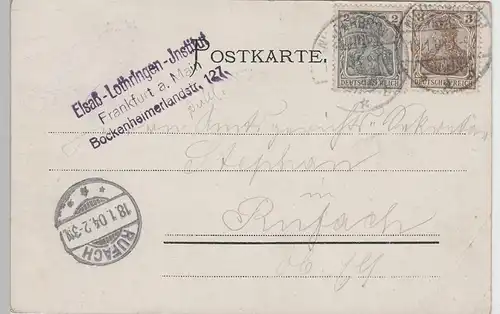 POSTKARTE.
2 2
DEUTSCHES REICH
3 3
DEUTSCHES REICH
Elsaß-Lothringen-Institut
Frankfurt a. Main
Bockenheimerlandstr. 127.
Amtsgerichts-Sekretär
Stephan
in
Rufach
18.1.04.2-3N.
RUFACH